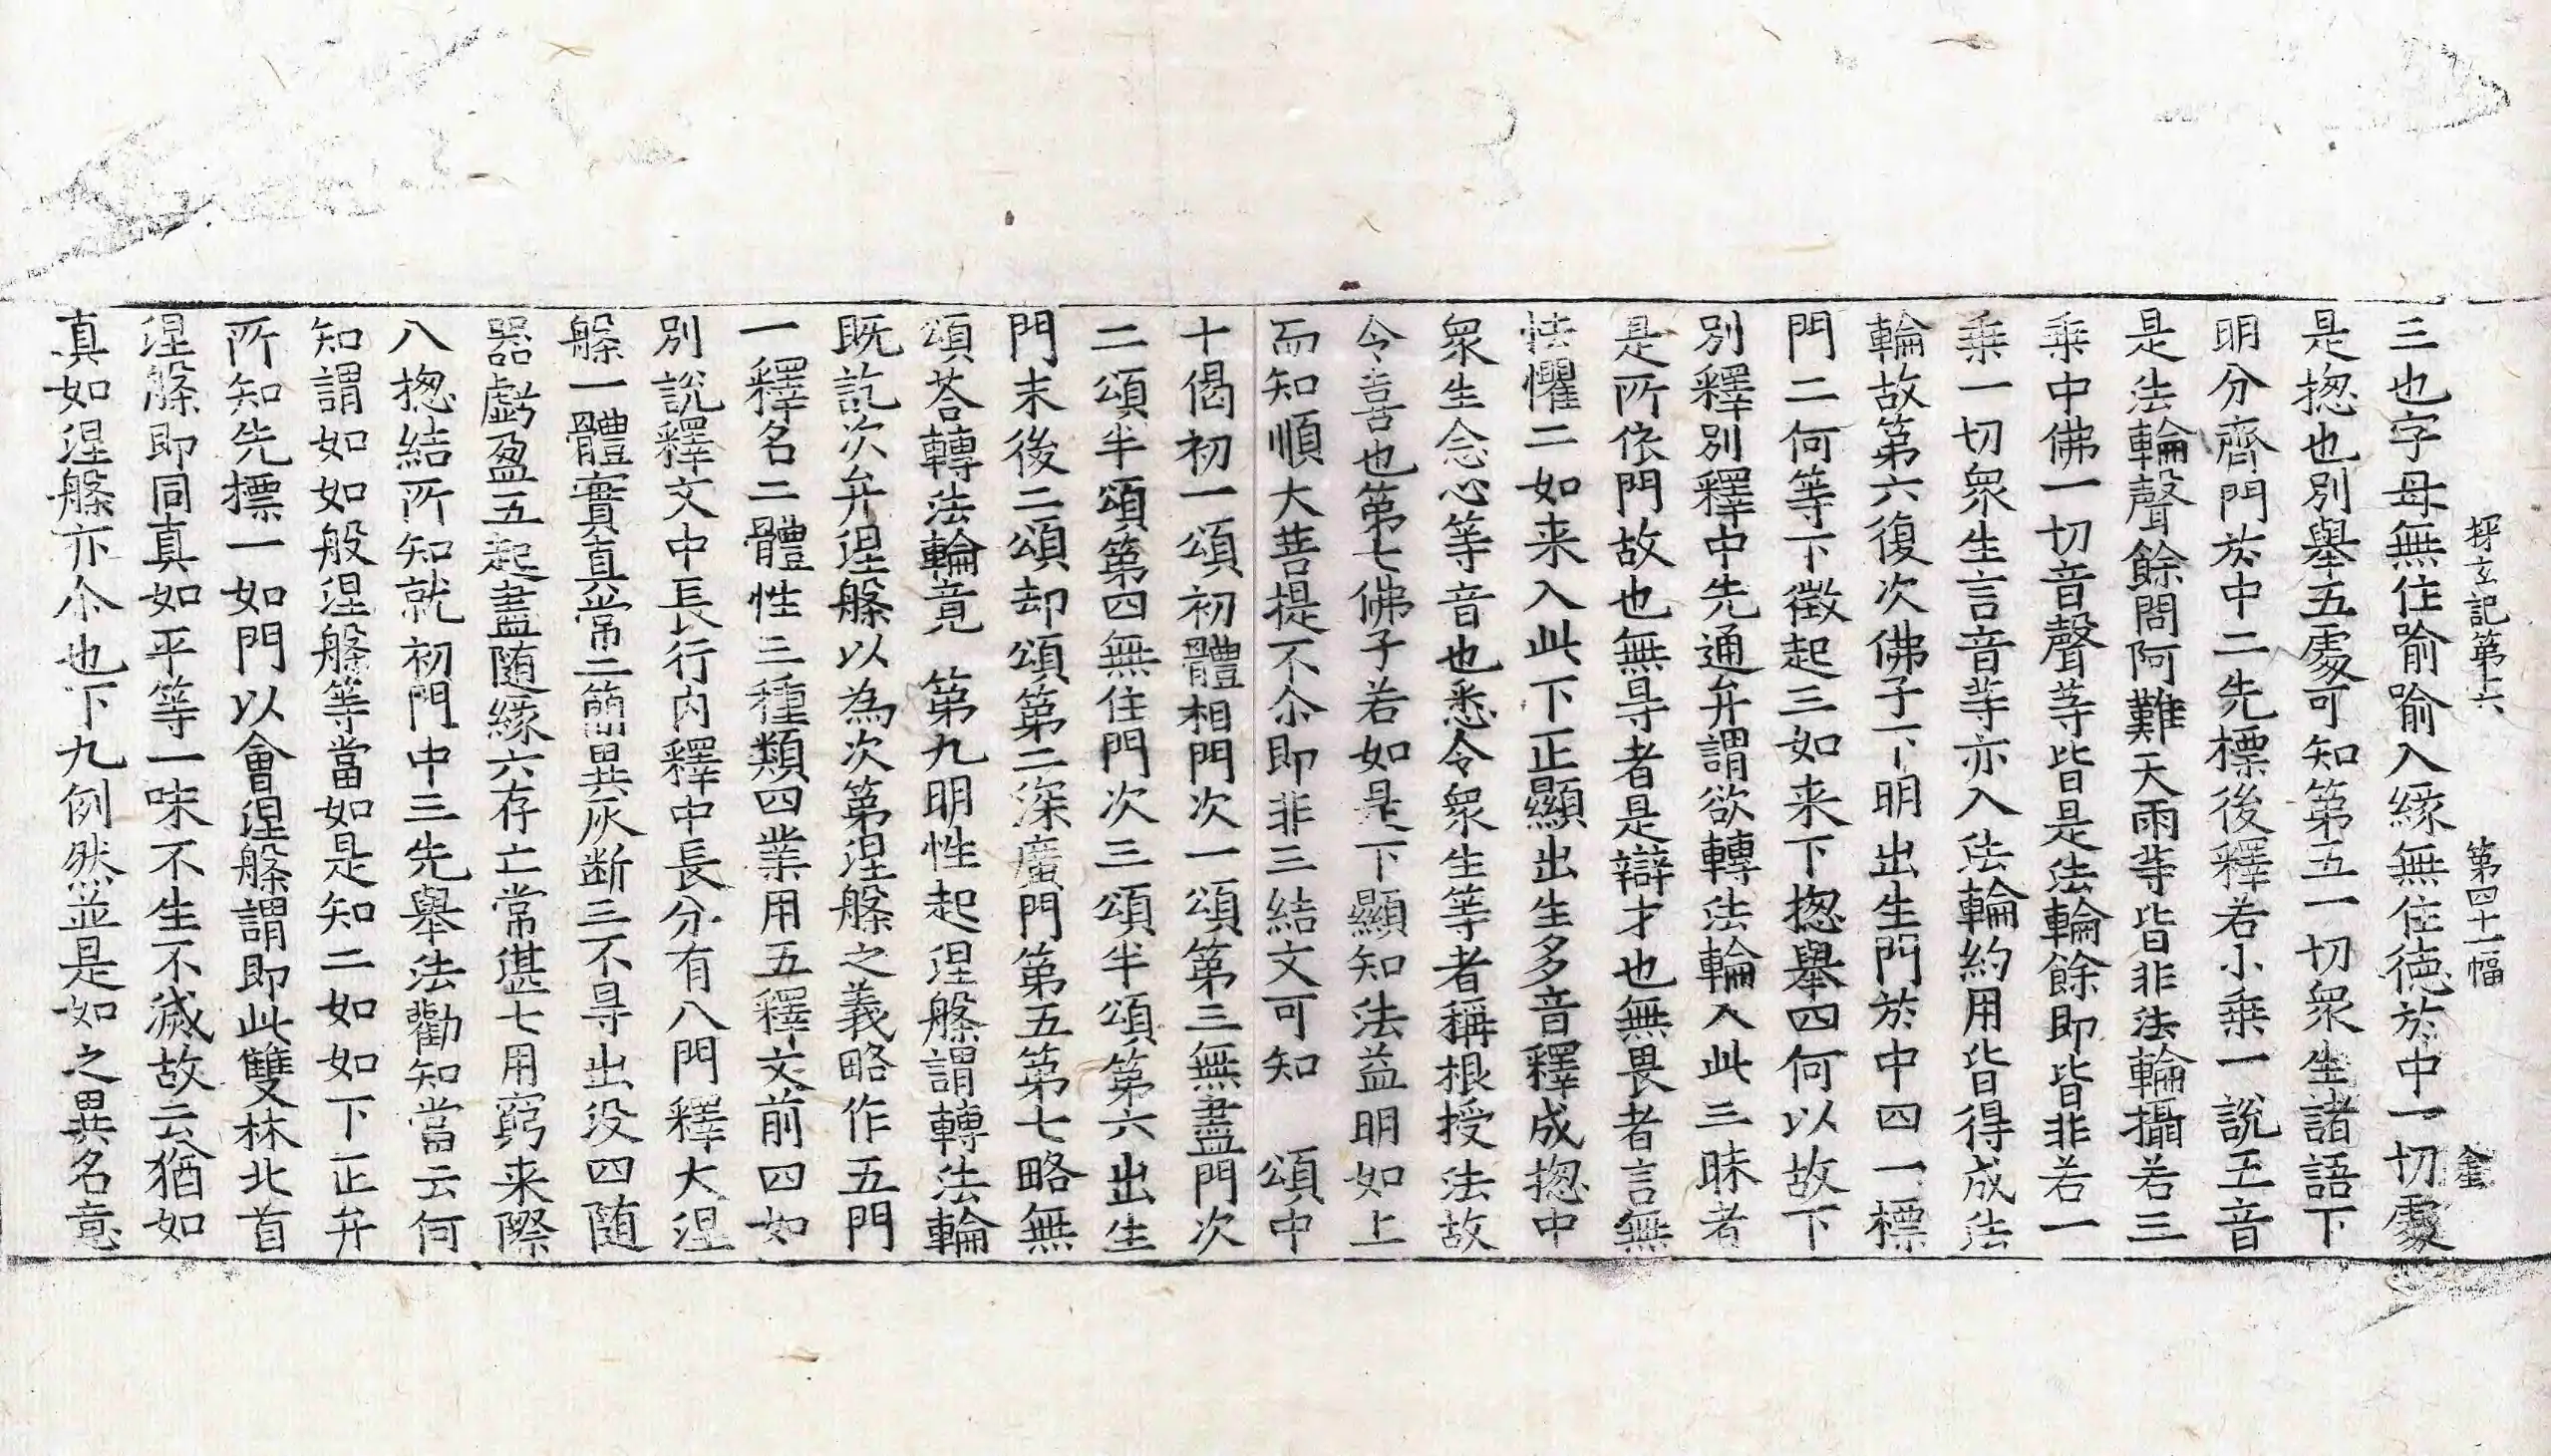 探玄記第六 第四十一幅 金
三也字母無住喻喻入緣無住德於中一切處
是揔也別舉五處可知第五一切衆生諸語下
明分齊門於中二先標後釋若小乗一說五音
是法輪聲餘問阿難天雨等皆非法輪攝若三
乗中佛一切音聲等皆是法輪餘即皆非若一
乗一切衆生言音等亦入法輪約用皆得成法
輪故第六復次佛子下明出生門於中四一標
門二何等下徵起三如来下揔舉四何以故下
別釋別釋中先通弁謂欲轉法輪入此三昧者
是所依門故也無㝵者是辯才也無畏者言無
怯懼二如来入此下正顯出生多音釋成揔中
衆生念心等音也悉令衆生等者稱根授法故
令喜也第七佛子若如是下顯知法益明如上
而知順大菩提不尒即非三結文可知 頌中
十偈初一頌初體相門次一頌第三無盡門次
二頌半頌第四無住門次三頌半頌第六出生
門末後二頌却頌第二深廣門第五第七略無
頌荅轉法輪竟 第九明性起涅槃謂轉法輪
既訖次弁涅槃以為次第涅槃之義略作五門
一釋名二體性三種類四業用五釋文前四如
別說釋文中長行内釋中長分有八門釋大涅
槃一體實真常二簡異灰断三不㝵出没四随
器虧盈五起盡随緣六存亡常湛七用窮来際
八揔結所知就初門中三先舉法勸知當云何
知謂如如般涅槃等當如是知二如如下正弁
所知先標一如門以會涅槃謂即此雙林北首
涅槃即同真如平等一味不生不滅故云猶如
真如涅槃亦尒也下九例然並是如之異名意